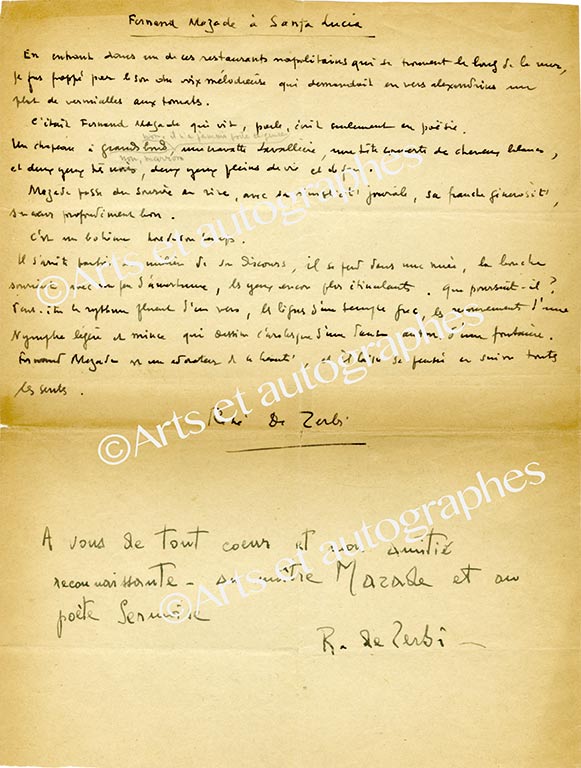 Fernand Mazade à Santa Lucia
En entrant dans un de ces restaurants napolitains qui se trouvent le long de la mer,
je fus frappé par le son du voix mélodieuse qui demandait en vers alexandrins un
plat de vermicelles aux tomates.
C'était Fernand Mazade qui vit, parle, écrit seulement en poésie.
non, il n'a jamais porté de
Un chapeau à grands bords, une cravate Lavallière, une tête couverte de cheveux blancs,
non, marrons
et deux yeux très noirs, deux yeux pleins de vie et de
Mazade passe du sourire au rire, avec sa joviale, sa franche générosité,
son cœur profondément bon.
C'est un bohème
Il s'arrête parfois au milieu de son discours, il se perd dans une nuée, la bouche
souriant avec un peu d'amertume, les yeux encore plus étincelants. Que poursuit-il?
le rythme fluent d'un vers, les lignes d'un temple grec, les mouvements d'une
Nymphe légère et mince qui dessine l'arabesque d'une danse autour d'une fontaine.
Fernand Mazade est un adorateur de la beauté et il laisse sa pensée en suivre toutes
les sentes.
René de Zerbi
A vous de tout coeur et mon amitié
reconnaissante - au maître Mazade et au
poète Sernoise
R. de Zerbi
©Arts et autographes
©Arts et autographes
©Arts et autographes
©Arts et autographes